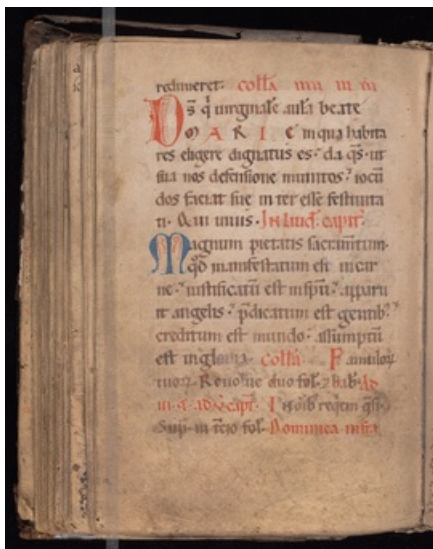 redimeret. coll̄a
D̄s q̇ uirginale aulā beate
MARIE in qua habita
res eligere dignatus es. da q̄s. ut
sua nos defensione munitos. iocū
dos faciat sue in ter esse festiuita
ti. Qui uiuis. In laud. capit.
Magnum pietatis sacramtum.
qd̄ manifestatum est in car
ne. iustificatū est in spū. apparu
it angelis. p̄dicatum est gentib.
creditum est mundo. assumptū
est in gloria. coll̄a Famuloꝝ
tuoꝝ. Reuolue duo fol. hab. Ad
capt. In oīb reqem q̄si.
Sup. in fol. Dominica infra